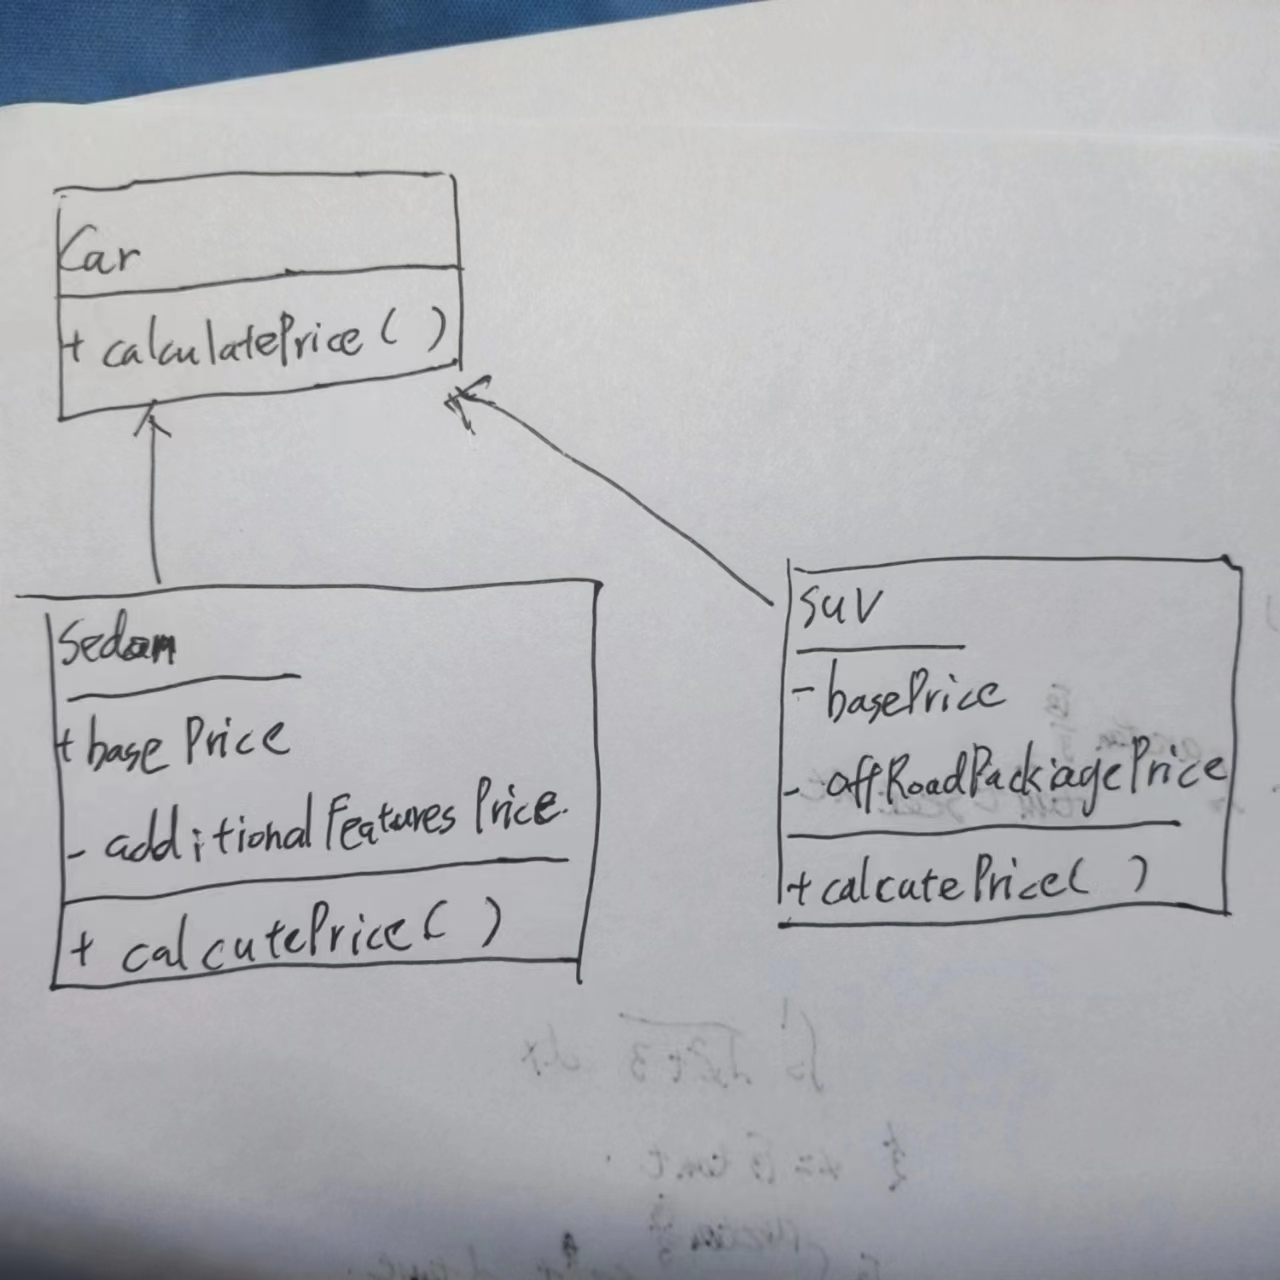 Car
+ calculatePrice ( )
Sedan
+ base Price
- additional Features Price.
+ calcutePrice ( )
SUV
- basePrice
- offRoadPackiagePrice
+ calcutePrice( )